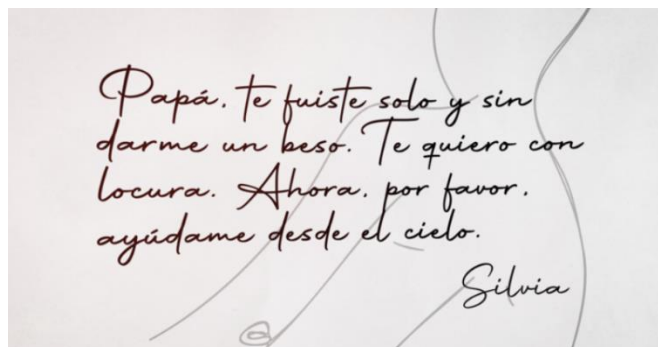 Papá, te fuiste solo y sin
darme un beso. Te quiero con
locura. Ahora, por favor,
ayúdame desde el cielo.
Silvia